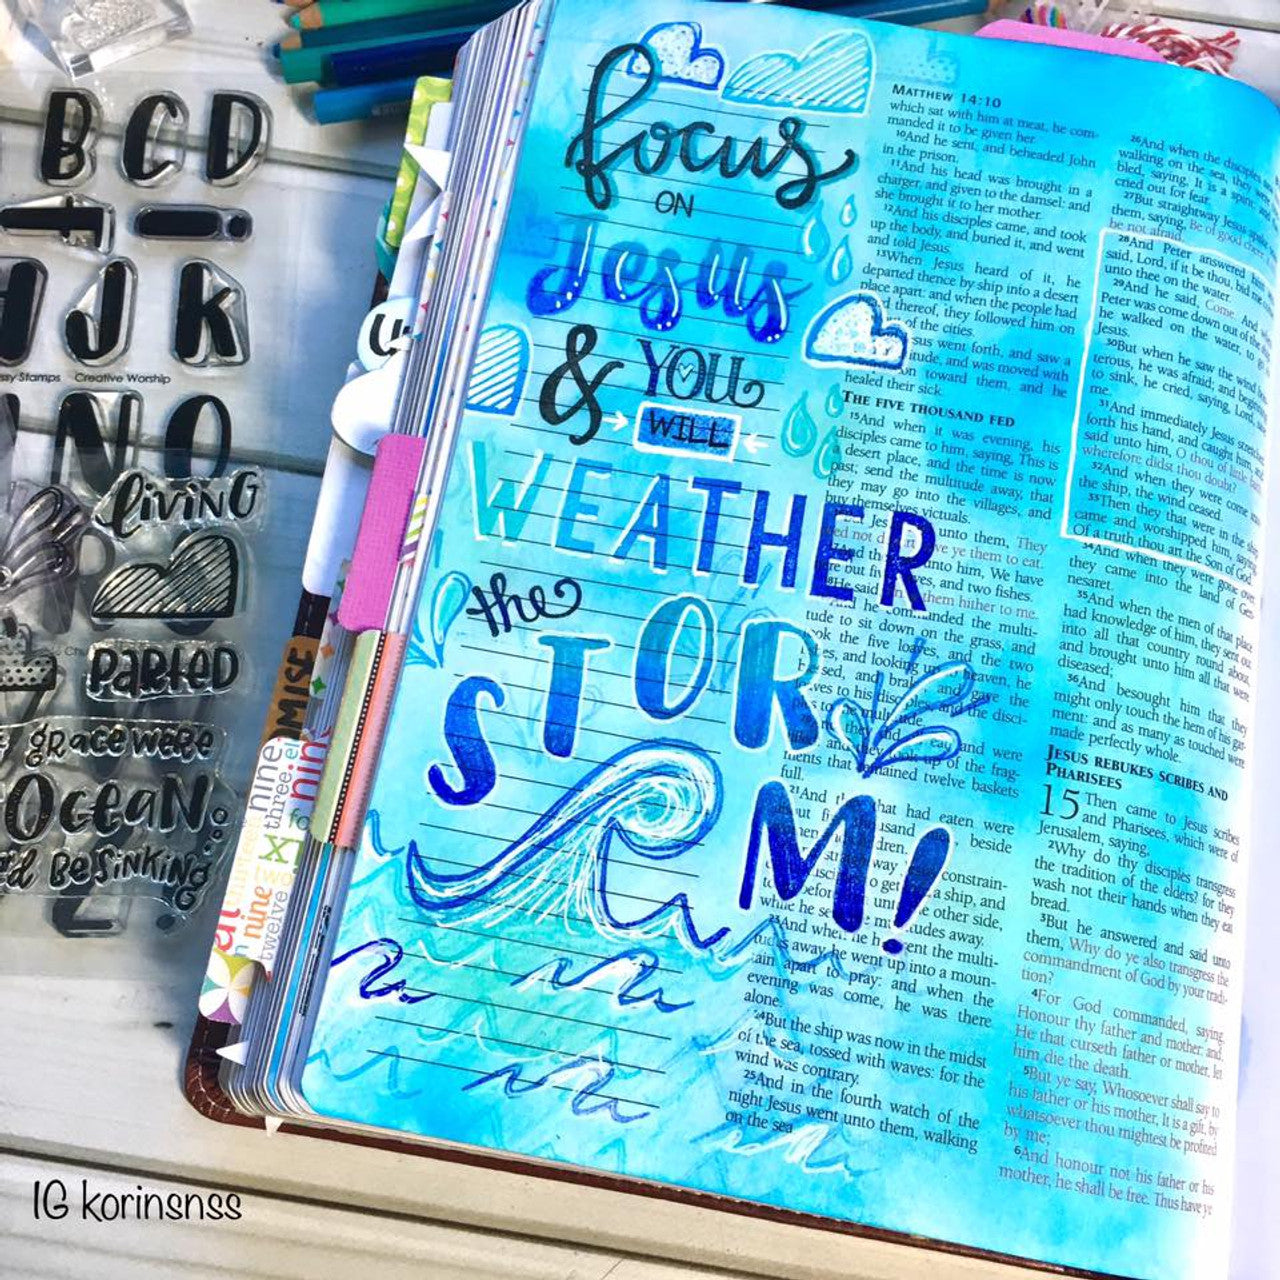 B C D
J K
Creative Worship
N O
living
Parted
grace were
Ocean
Be Sinking
focus
ON
Jesus
& YOU
WILL
WEATHER
the
STORM!
MATTHEW 14:10
which sat with him at meat, he com-
manded it to be given her.
10And he sent, and beheaded John
in the prison.
11And his head was brought in a
charger, and given to the damsel: and
she brought it to her mother.
12And his disciples came, and took
up the body, and buried it, and went
and told Jesus.
13When Jesus heard of it, he
departed thence by ship into a desert
place apart: and when the people had
thereof, they followed him on
of the cities.
went forth, and saw a
and was moved with
toward them, and he
healed their sick.
THE FIVE THOUSAND FED
15And when it was evening, his
disciples came to him, saying, This is
a desert place, and the time is now
past; send the multitude away, that
they may go into the villages, and
buy themselves victuals.
unto them, They
ye them to eat.
unto him, We have
and two fishes.
said them hither to me.
And he commanded the multi-
tude to sit down on the grass, and
the five loaves, and the two
and looking up heaven, he
and gave the
to his disciples, and the disci-
to
they eat, and were
and they up of the frag-
ments that remained twelve baskets
full.
21And that had eaten were
beside
way constrain-
to get a ship, and
the other side,
while he away.
23And when he sent the multi-
away, he went up into a moun-
tain apart to pray: and when the
evening was come, he was there
alone.
24But the ship was now in the midst
of the sea, tossed with waves: for the
wind was contrary.
25And in the fourth watch of the
night Jesus went unto them, walking
on the sea.
26And when the disciples
walking on the sea, they were
saying, It is a spirit; and
cried out for fear.
27But straightway Jesus
them, saying, Be of good
be not afraid.
28And Peter answered
said, Lord, if it be thou, bid me
unto thee on the water.
29And he said, Come. And
Peter was come down out of the
he walked on the water, to go
Jesus.
30But when he saw the wind
he was afraid; and beginning
to sink, he cried, saying, Lord,
me.
31And immediately Jesus stretched
forth his hand, and caught him, and
said unto him, O thou of little
wherefore didst thou doubt?
32And when they were come
the ship, the wind ceased.
33Then they that were in the ship
came and worshipped him, saying,
Of a truth thou art the Son of God.
34And when they were gone over,
they came into the land of Gen-
nesaret.
35And when the men of that place
had knowledge of him, they sent out
into all that country round about,
and brought unto him all that were
diseased;
36And besought him that they
might only touch the hem of his gar-
ment: and as many as touched were
made perfectly whole.
JESUS REBUKES SCRIBES AND
PHARISEES
15 Then came to Jesus scribes
and Pharisees, which were of
Jerusalem, saying,
2Why do thy disciples transgress
the tradition of the elders? for they
wash not their hands when they eat
bread.
3But he answered and said unto
them, Why do ye also transgress the
commandment of God by your tradi-
tion?
4For God commanded, saying,
Honour thy father and mother: and,
He that curseth father or mother, let
him die the death.
5But ye say, Whosoever shall say to
his father or his mother, It is a gift, by
whatsoever thou mightest be profited
by me;
6And honour not his father or his
mother, he shall be free. Thus have ye
IG korinsnss